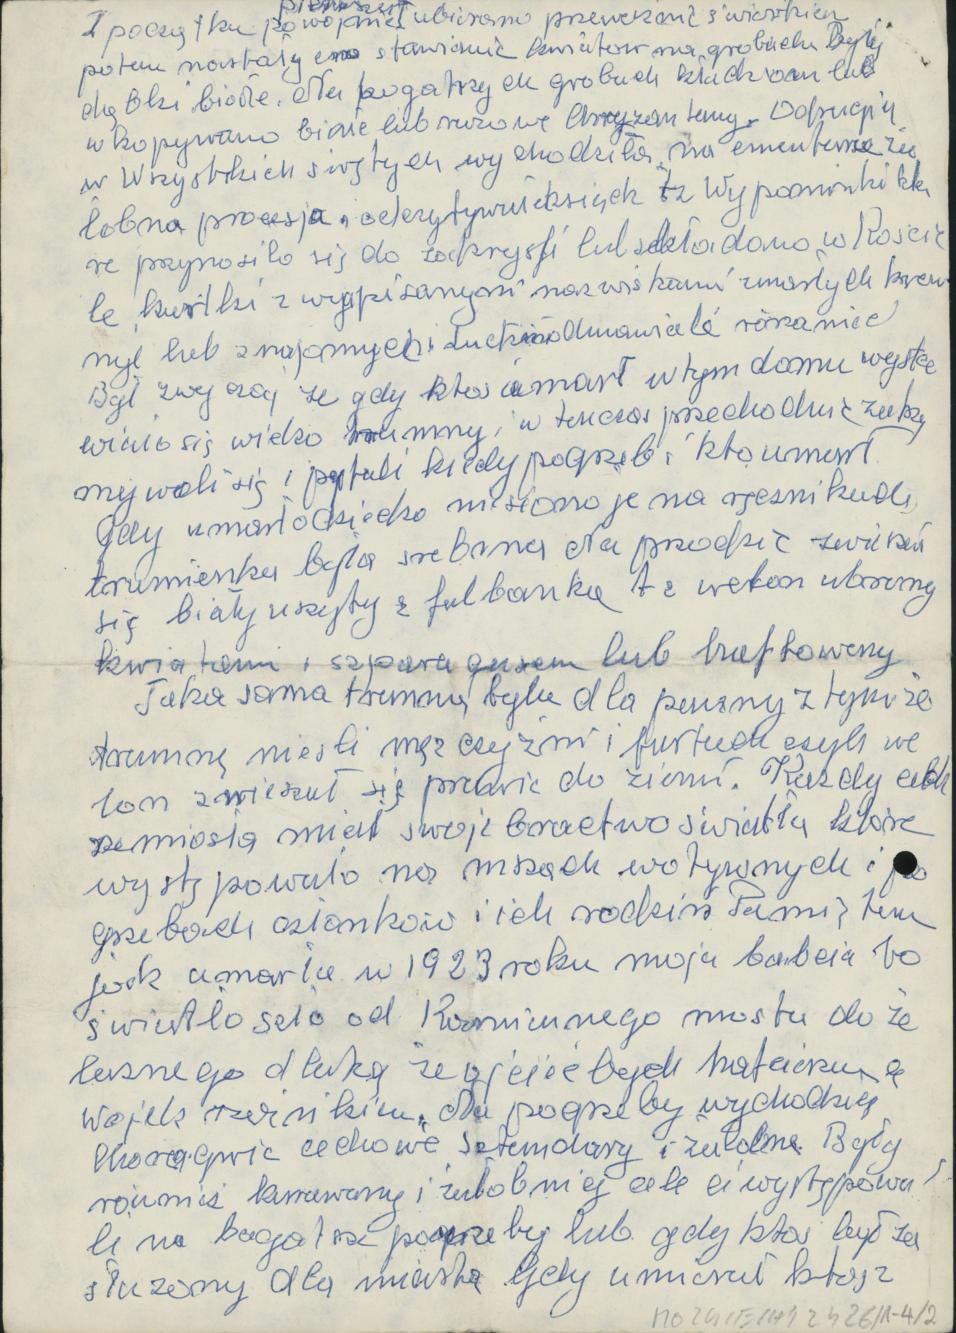 I początku powojniu ubierano przeważnie świerkiem
potem nastały eno stawianie kwiatów na grobach Były
dąbki białe. dla bogatszych grobach kładziono lub
wkopywano białe lub różowe Chryzantemy. Odrucpiu
w Wszystkich świętych wychodziła na cmentarz ża
łobna procesja, odczytywał ksiądz tz Wypominki któ
re przynosiło się do zakrysji lub składano w Koście
le kartki z wypisanymi nazwiskami zmarłych krew
nyl lub znajomych i ludzie odmawiali różaniec
Był zwyczaj że gdy ktoś umarł w tym domu wysta
wiało się wieko trumny i w tenczas przechodnie zatrzy
mywali się i pytali kiedy pogrzeb i kto umarł
Gdy zmarło dziecko niesiono je na ręcznikach
trumienka była srebrna dla przodzie zwieszał
się biały uszyty z falbanką tz welon ubrany
kwiatami i szparagusem lub haftowany
Taka sama trumna była dla panny z tym że
trumnę nieśli mężczyźni i fartuch czyli we
lon zwieszał się prawie do ziemi. Każdy cech
rzemiosła miał swoje bractwo światła które
występowało na mszach wotywnych i po
grzebach członków i ich rodzin Pamiętam
jak umarła w 1923 roku moja babcia to
światło szło od Kamiennego mostu do że
laznego dłuką że ojciec był kafarzem a
wojek rzeźnikiem. dla pogrzeby wychodzią
Chorągwie cechowe Sztandary i żałobne Były
również karawany i żałobnicy ale ci występowa
li na bogatsze pogrzeby lub gdy ktoś był za
służony dla miasta Gdy umierał ktoś z